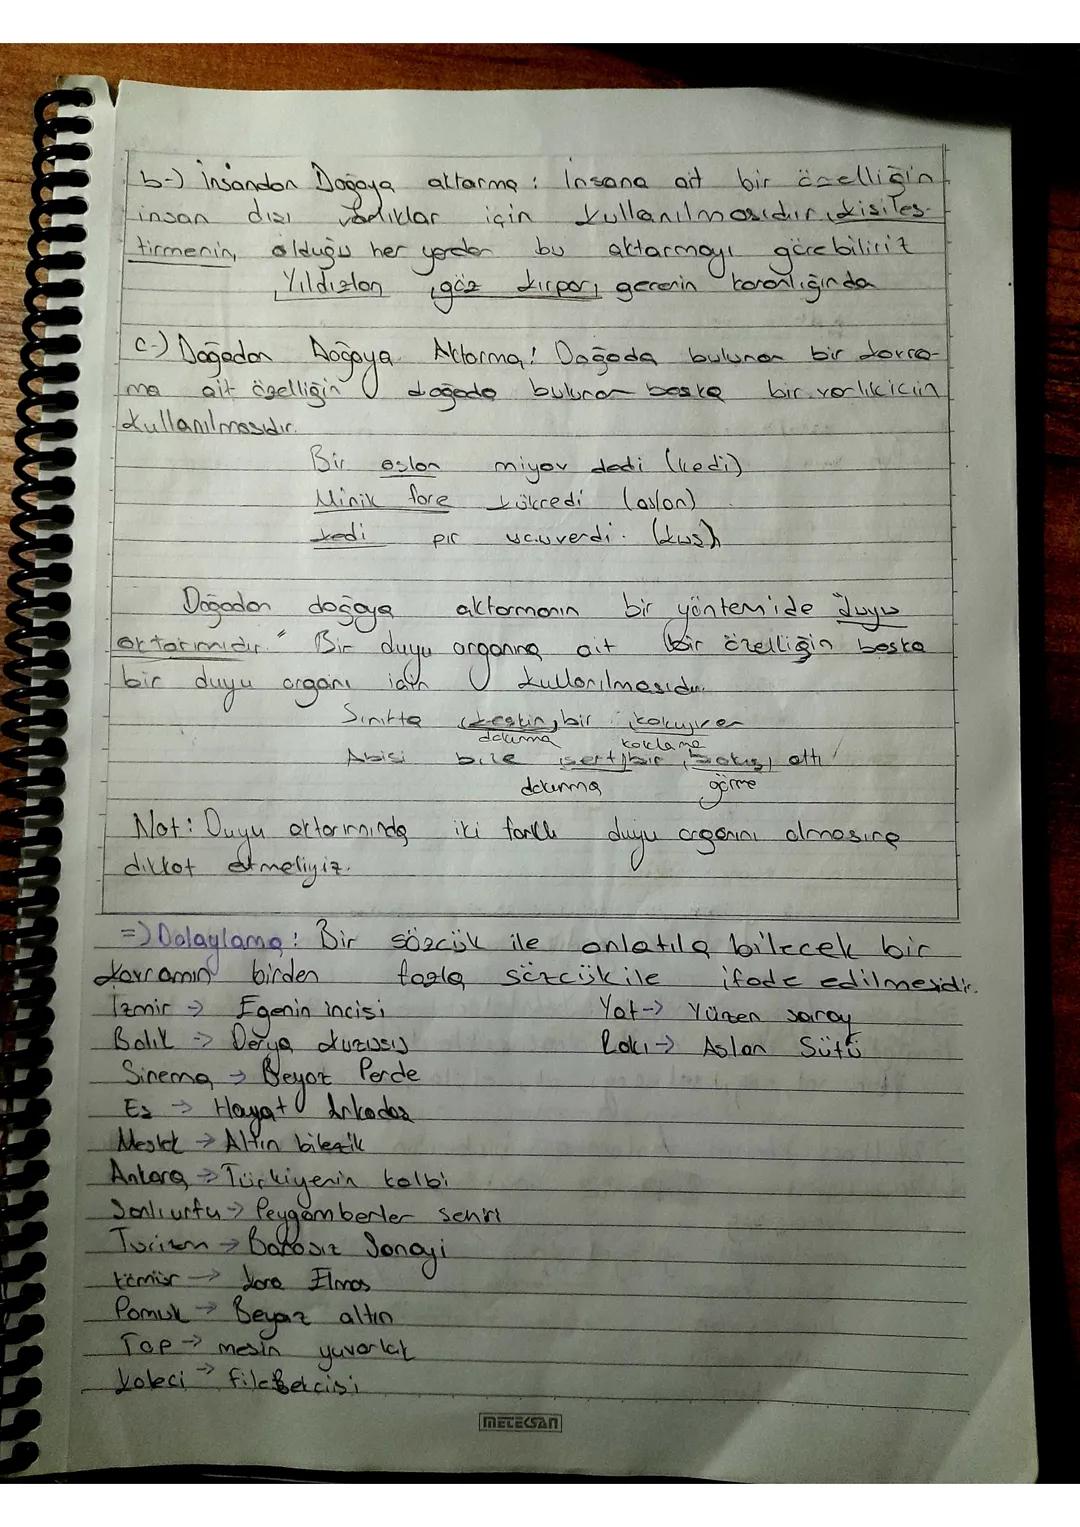 b-) İnsandan Doğaya aktarma : İnsana ait bir özelliğin
insan dışı varlıklar için kullanılmasıdır, kişileş-
tirmenin, olduğu her yerden bu aktarmayı görebiliriz
Yıldızlar göz kırpar gecenin karanlığında
c-) Doğadan Doğaya Aktarma: Doğada bulunan bir kavra-
ma ait özelliğin doğada bulunan başka bir varlık için
kullanılmasıdır.
Bir aslan miyav dedi (kedi)
Minik fare kükredi (aslan)
kedi pır uçuverdi. (kuş)
Doğadan doğaya aktarmanın bir yöntemide "duyu
aktarımıdır." Bir duyu organına ait bir özelliğin başka
bir duyu organı için kullanılmasıdır.
Sınıfta keskin bir koku var
dokunma koklama
Abisi bize sert bir bakış attı
dokunma görme
Not: Duyu aktarımında iki farklı duyu organını olmasına
dikkat etmeliyiz.
=) Dolaylama: Bir sözcük ile anlatıla bilecek bir
kavramın birden fazla sözcük ile ifade edilmesidir.
İzmir → Egenin incisi Yat → Yüzen saray
Balık → Derya kuzusu Rakı → Aslan Sütü
Sinema → Beyaz Perde
Eş → Hayat Arkadaş
Meslek → Altın bilezik
Ankara → Türkiyenin kalbi
Şanlıurfa → Peygamberler şehri
Turizm → Bacasız Sanayi
kömür → kara Elmas
Pamuk → Beyaz altın
Top → meşin yuvarlak
kaleci → file Bekçisi
METEKSAN